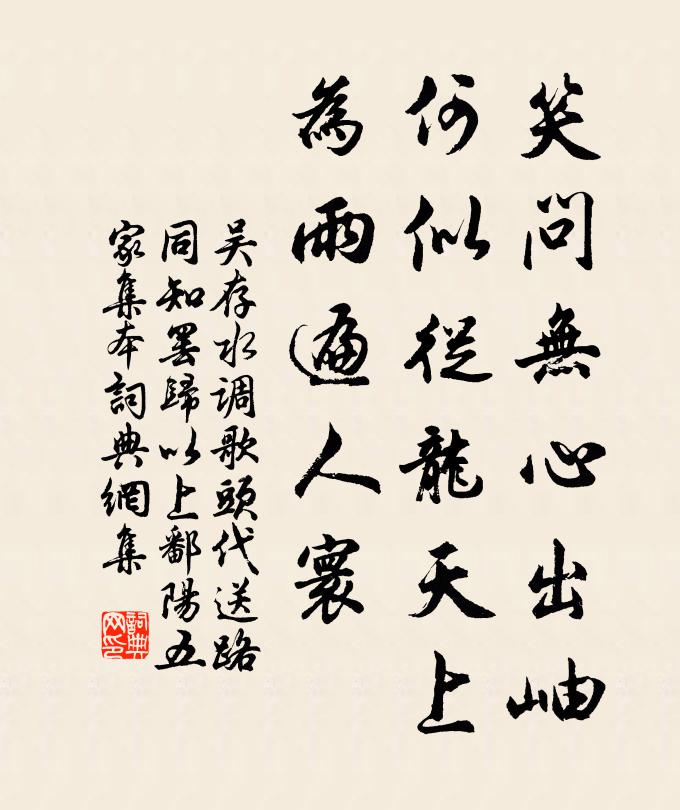 笑問無心出岫
何似從龍天上
為雨遍人寰
吴存水调歌頭代送路
同知罢歸以上鄱陽五
家集本詞典網集
詞典
网印